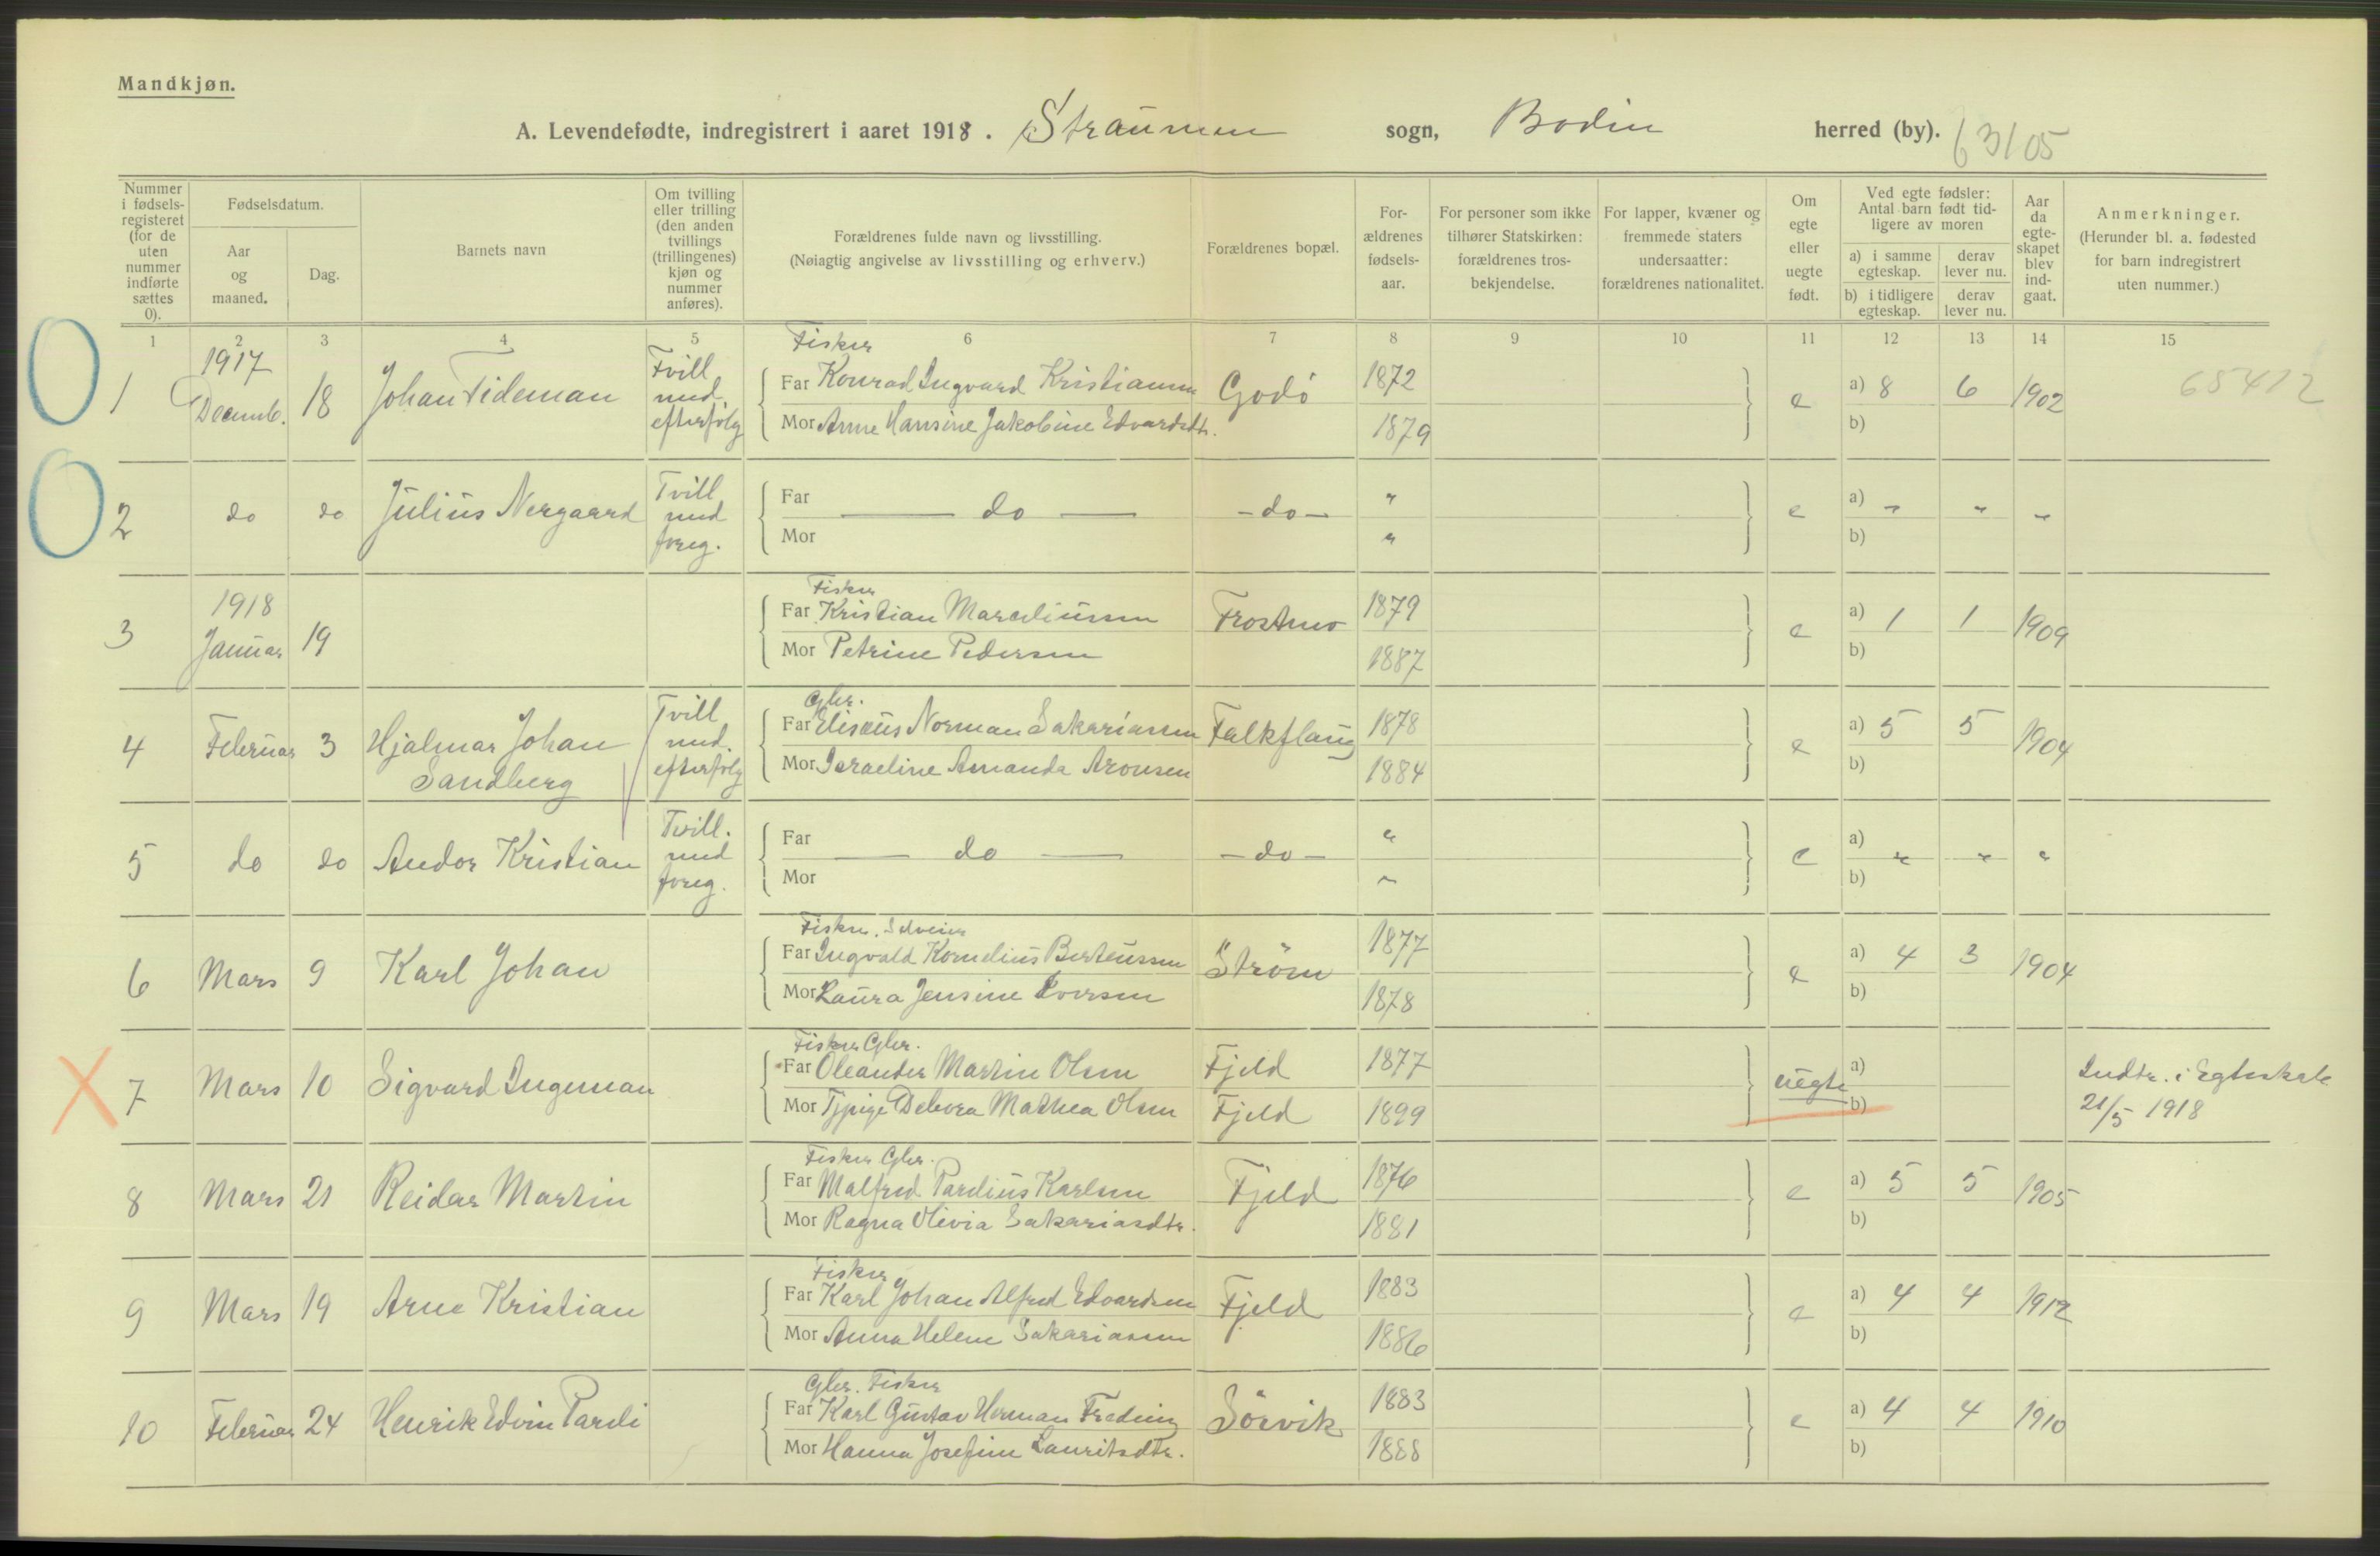 Mandkjøn.
A. Levendefødte, indregistrert i aaret 1918. Straumen sogn, Bodin herred (by). 63/05
Nummer i fødsels-registeret (for de uten nummer indførte sættes 0).
Fødselsdatum.
Aar og maaned.
Dag.
Barnets navn
Om tvilling eller trilling (den anden tvillings (trillingenes) kjøn og nummer anføres).
Forældrenes fulde navn og livsstilling.
(Nøiagtig angivelse av livsstilling og erhverv.)
Forældrenes bopæl.
For-ældrenes fødsels-aar.
For personer som ikke tilhører Statskirken: forældrenes tros-bekjendelse.
For lapper, kvæner og fremmede staters undersaatter: forældrenes nationalitet.
Om egte eller uegte født.
Ved egte fødsler: Antal barn født tid-ligere av moren
a) i samme egteskap. derav lever nu.
b) i tidligere egteskap. derav lever nu.
Aar da egte-skapet blev ind-gaat.
Anmerkninger.
(Herunder bl. a. fødested for barn indregistrert uten nummer.)
1 2 3 4 5 6 7 8 9 10 11 12 13 14 15
1 1917 Decemb. 18 Johan Tideman Tvill med efterfölg
Fisker
Far Konrad Ingvard Kristiansen Godö 1872 e a) 8 6 1902 65412
Mor Anne Hansine Jakobine Edvardsdtr. 1879 b)
2 do do Julius Nergaard Tvill med foreg.
Far — do — - do - " e a) " " "
Mor " b)
3 1918 Januar 19
Fisker
Far Kristian Marceliussen Frostmo 1879 e a) 1 1 1909
Mor Petrine Pedersen 1887 b)
4 Februar 3 Hjalmar Johan Sandberg Tvill med. efterfölg
Gbr.
Far Elisæus Norman Sakariassen Falkflaug 1878 e a) 5 5 1904
Mor Israeline Amanda Aronsen 1884 b)
5 do do Andor Kristian Tvill. med foreg.
Far — do — - do - " e a) " " "
Mor " b)
6 Mars 9 Karl Johan
Fisker. Selveier
Far Ingvald Kornelius Berteussen Ström 1877 e a) 4 3 1904
Mor Laura Jensine Iversen 1878 b)
7 Mars 10 Sigvard Ingeman
Fisker Gbr.
Far Oleander Martin Olsen Fjeld 1877 uegte a) Indtr. i Egteskab
Mor Tjpige Debora Mathea Olsen Fjeld 1899 b) 21/5 1918
8 Mars 21 Reidar Martin
Fisker Gbr.
Far Malfred Pardius Karlsen Fjeld 1876 e a) 5 5 1905
Mor Ragna Olivia Sakariasdtr. 1881 b)
9 Mars 19 Arne Kristian
Fisker
Far Karl Johan Alfred Edvardsen Fjeld 1883 e a) 4 4 1912
Mor Anna Helene Sakariassen 1886 b)
10 Februar 24 Henrik Edvin Pareli
Gbr. Fisker
Far Karl Gustav Herman Freding Sörvik 1883 e a) 4 4 1910
Mor Hanna Josefine Lauritsdtr. 1888 b)